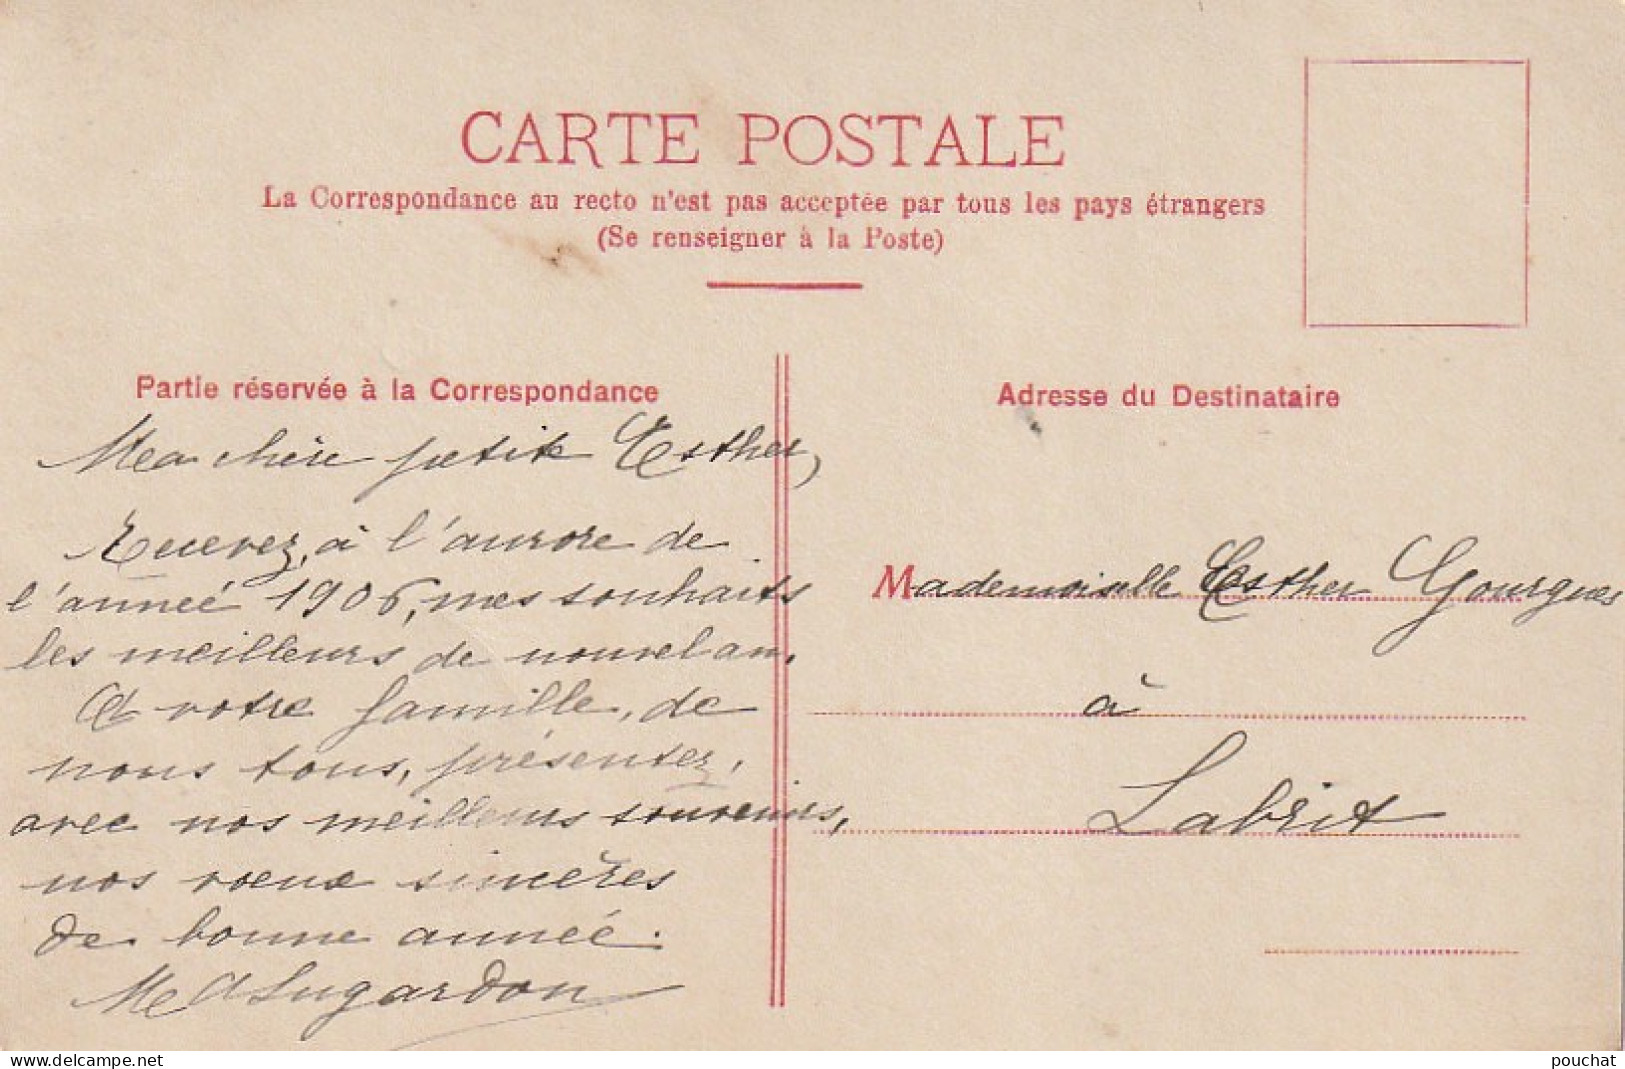 CARTE POSTALE
La Correspondance au recto n'est pas acceptée par tous les pays étrangers
(Se renseigner à la Poste)
Partie réservée à la Correspondance
Ma chère petite Esther,
Recevez, à l'aurore de
l'année 1906, mes souhaits
les meilleurs de nouvel an.
Et votre famille, de
nous tous, présentez,
avec nos meilleurs souvenirs,
nos vœux sincères
de bonne année.
Adresse du Destinataire
Mademoiselle Esther Gourgues
à
Labrit
delcampe.net
pouchat